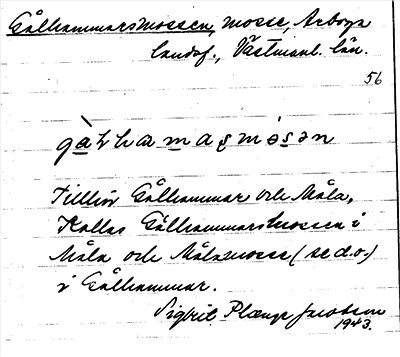 Gålhammarsmossen, mosse, Arboga
landsf., Västmanl. län.
56
Tillhör Gålhammar och Måla,
Kallas Gålhammarsmossen i
Måla och Målamosse (se d.o.)
i Gålhammar.
Sigbrit Plænge Jacobson
1943.